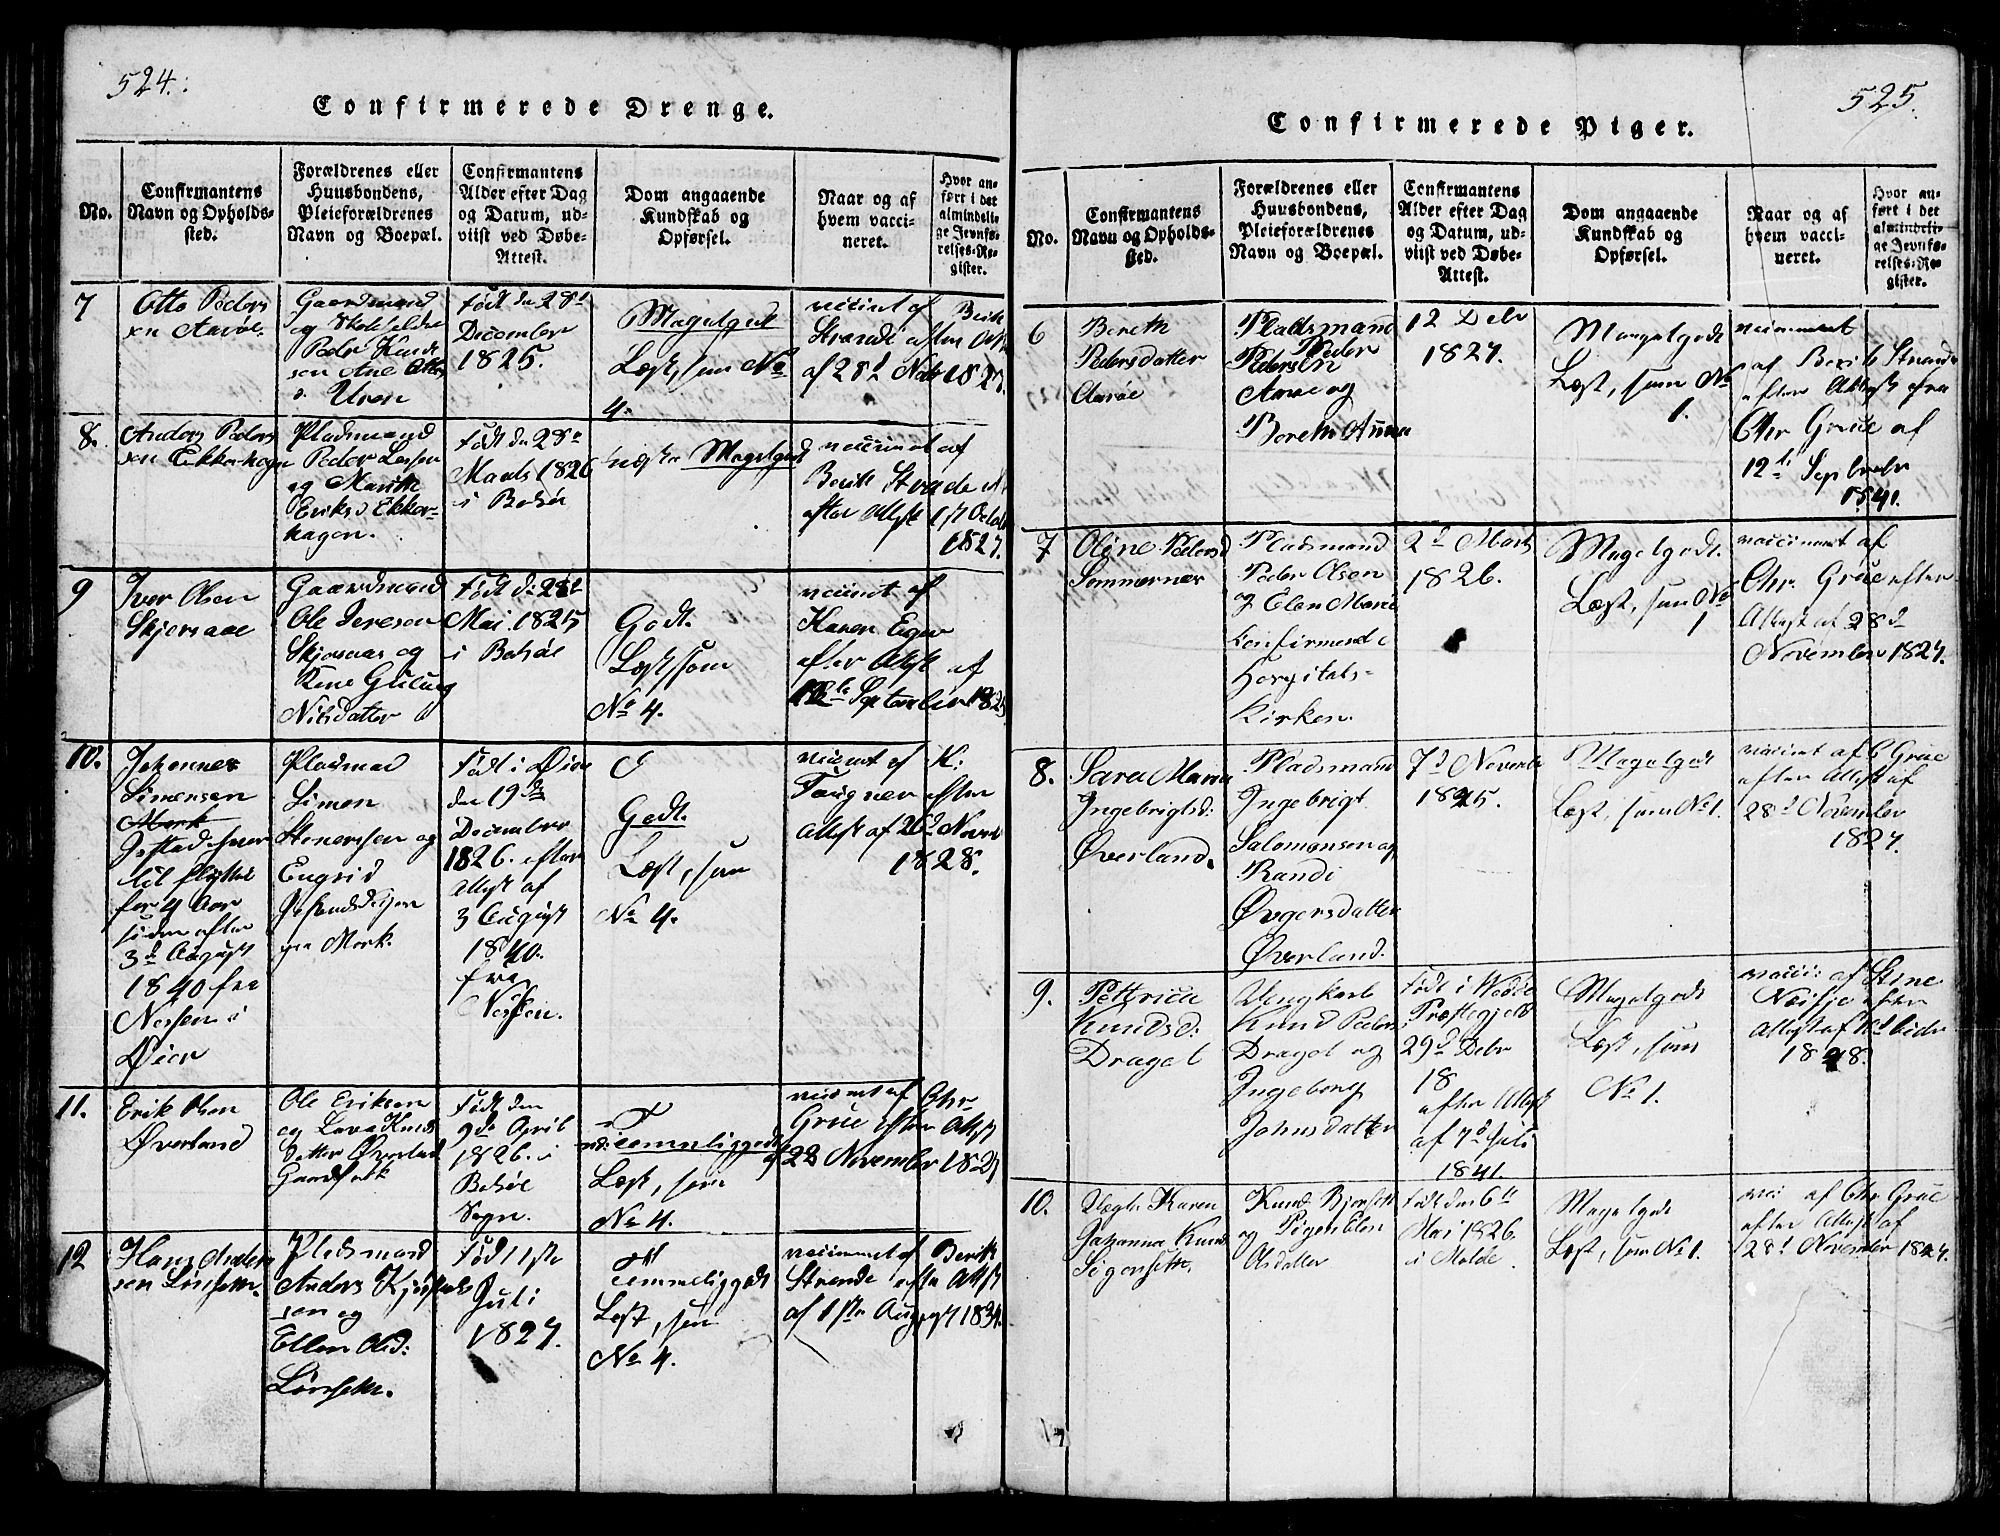 524.
Confirmerede Drenge.
No.
Confirmantens
Navn og Opholds-
sted.
Forældrenes eller
Huusbondens,
Pleieforældrenes
Navn og Boepæl.
Confirmantens
Alder efter Dag
og Datum, ud-
viist ved Døbe-
Attest.
Dom angaaende
Kundskab og
Opførsel.
Naar og af
hvem vacci-
neret.
Hvor an-
ført i det
almindeli-
ge Jevnfø-
relses-Re-
gister.
7
Otto Peders
en Aarøe
Gaardmand
og
Peder Knud
sen Ane
Født den 28d
December
1825.
Magelgodt
Læst, som No
4.
vaccinet af Berit
Strande efter
af 28d Novbr 1827.
8.
Anders Peders
en Ekkerhagen
Pladsmand
Peder Larsen
og Marithe
Eriksd Ekker-
hagen.
Født den 28de
Marts 1826
i Bolsøe
Magelgodt
vaccinet af
Berit Strande
efter Attest 1st Octob
1827.
9
Iver Olsen
Skjorsaae
Gaardmand
Ole Iversen
Skjorsaae og
Nilsdatter
Født d: 28d
Mai. 1825
i Bolsøe
Godt.
Læst som
No 4.
vaccinet af
Karen Eger
efter Attest af
12te September
10.
Johannes
Simensen
Mork
for 4 Aar
siden efter
3d August
1840 fra
Nessen i
Øier
Pladsmand
Simen
Stenersen og
Engrid
Mork.
Født i Øier
den 19de
December
1826. efter
Attest af
3 August
1840.
fra
Nessen.
Godt.
Læst, som
No 4.
vaccinet af K:
Taugner efter
Attest af 26d Novbr
1828.
11.
Erik Olsen
Øverland
Ole Eriksen
og Lava Knuds
datter Øverland
Gaardfolk
Født den
9de April
1826. i
Bolsøe
Sogn.
Temmeliggodt
Læst, som
No 4.
vaccinet af Chr
Grüe efter Attest
af 28 November 1827
12
Hans Anders
sen Lønseth
Pladsmand
Anders
sen og
Ellen Olsd:
Lønseth.
Født 1ste
Juli
1827.
Temmeliggodt
Læst, som
No 4.
vaccinet af Berit
Strande efter Attest
af 1ste August 1834.
525.
Confirmerede Piger.
No.
Confirmantens
Navn og Opholds-
sted.
Forældrenes eller
Huusbondens,
Pleieforældrenes
Navn og Boepæl.
Confirmantens
Alder efter Dag
og Datum, ud-
viist ved Døbe-
Attest.
Dom angaaende
Kundskab og
Opførsel.
Naar og af
hvem vacci-
neret.
Hvor an-
ført i det
almindeli-
ge Jevnfø-
relses-Re-
gister.
6
Bereth
Pedersdatter
Aarøe
Pladsmand
Peder
Pedersen
Aarøe og
Bereth Anna
12 Debr
1827.
Magelgodt
Læst, som No
1.
vaccineret
af Berit Strande
efter Attest fra
Chr Grüe af
12te September
1841.
7
Oline Pedersd
Sommernes
Pladsmand
Peder Olsen
og Elen Marie
Confirmerede i
Hospitals-
Kirken.
2d Marts
1826.
Magelgodt.
Læst, som No
1
vaccineret af
Chr. Grüe efter
Attest af 28d
November 1827.
8.
Sara Maria
Ingebrigtsd:
Øverland.
Pladsmand
Ingebrigt
Salomonsen og
Randi
Øvgersdatter
Øverland.
7d Novembr
1825.
Magelgodt
Læst, som No 1.
vaccinet af C Grüe
efter Attest af
28d November
1827.
9.
Pettrica
Knudsd:
Draget
Ungkarl
Knud Peders
Draget og
Ingeborg
Johnsdatter
Født i Vedøe
Præstegjeld
29d Debr
18
efter Attest
af 7d Juli
1841.
Magelgodt
Læst, som
No 1.
vacci: af Stine
efter
Attest af
1828.
10.
Karen
Johanna Knuds
Knud
og Elen
Olsdatter
Født den 6te
Mai 1826.
i Molde
Magelgodt
Læst, som No 1.
vaci af Chr Grüe
efter Attest af
28d November 1827.